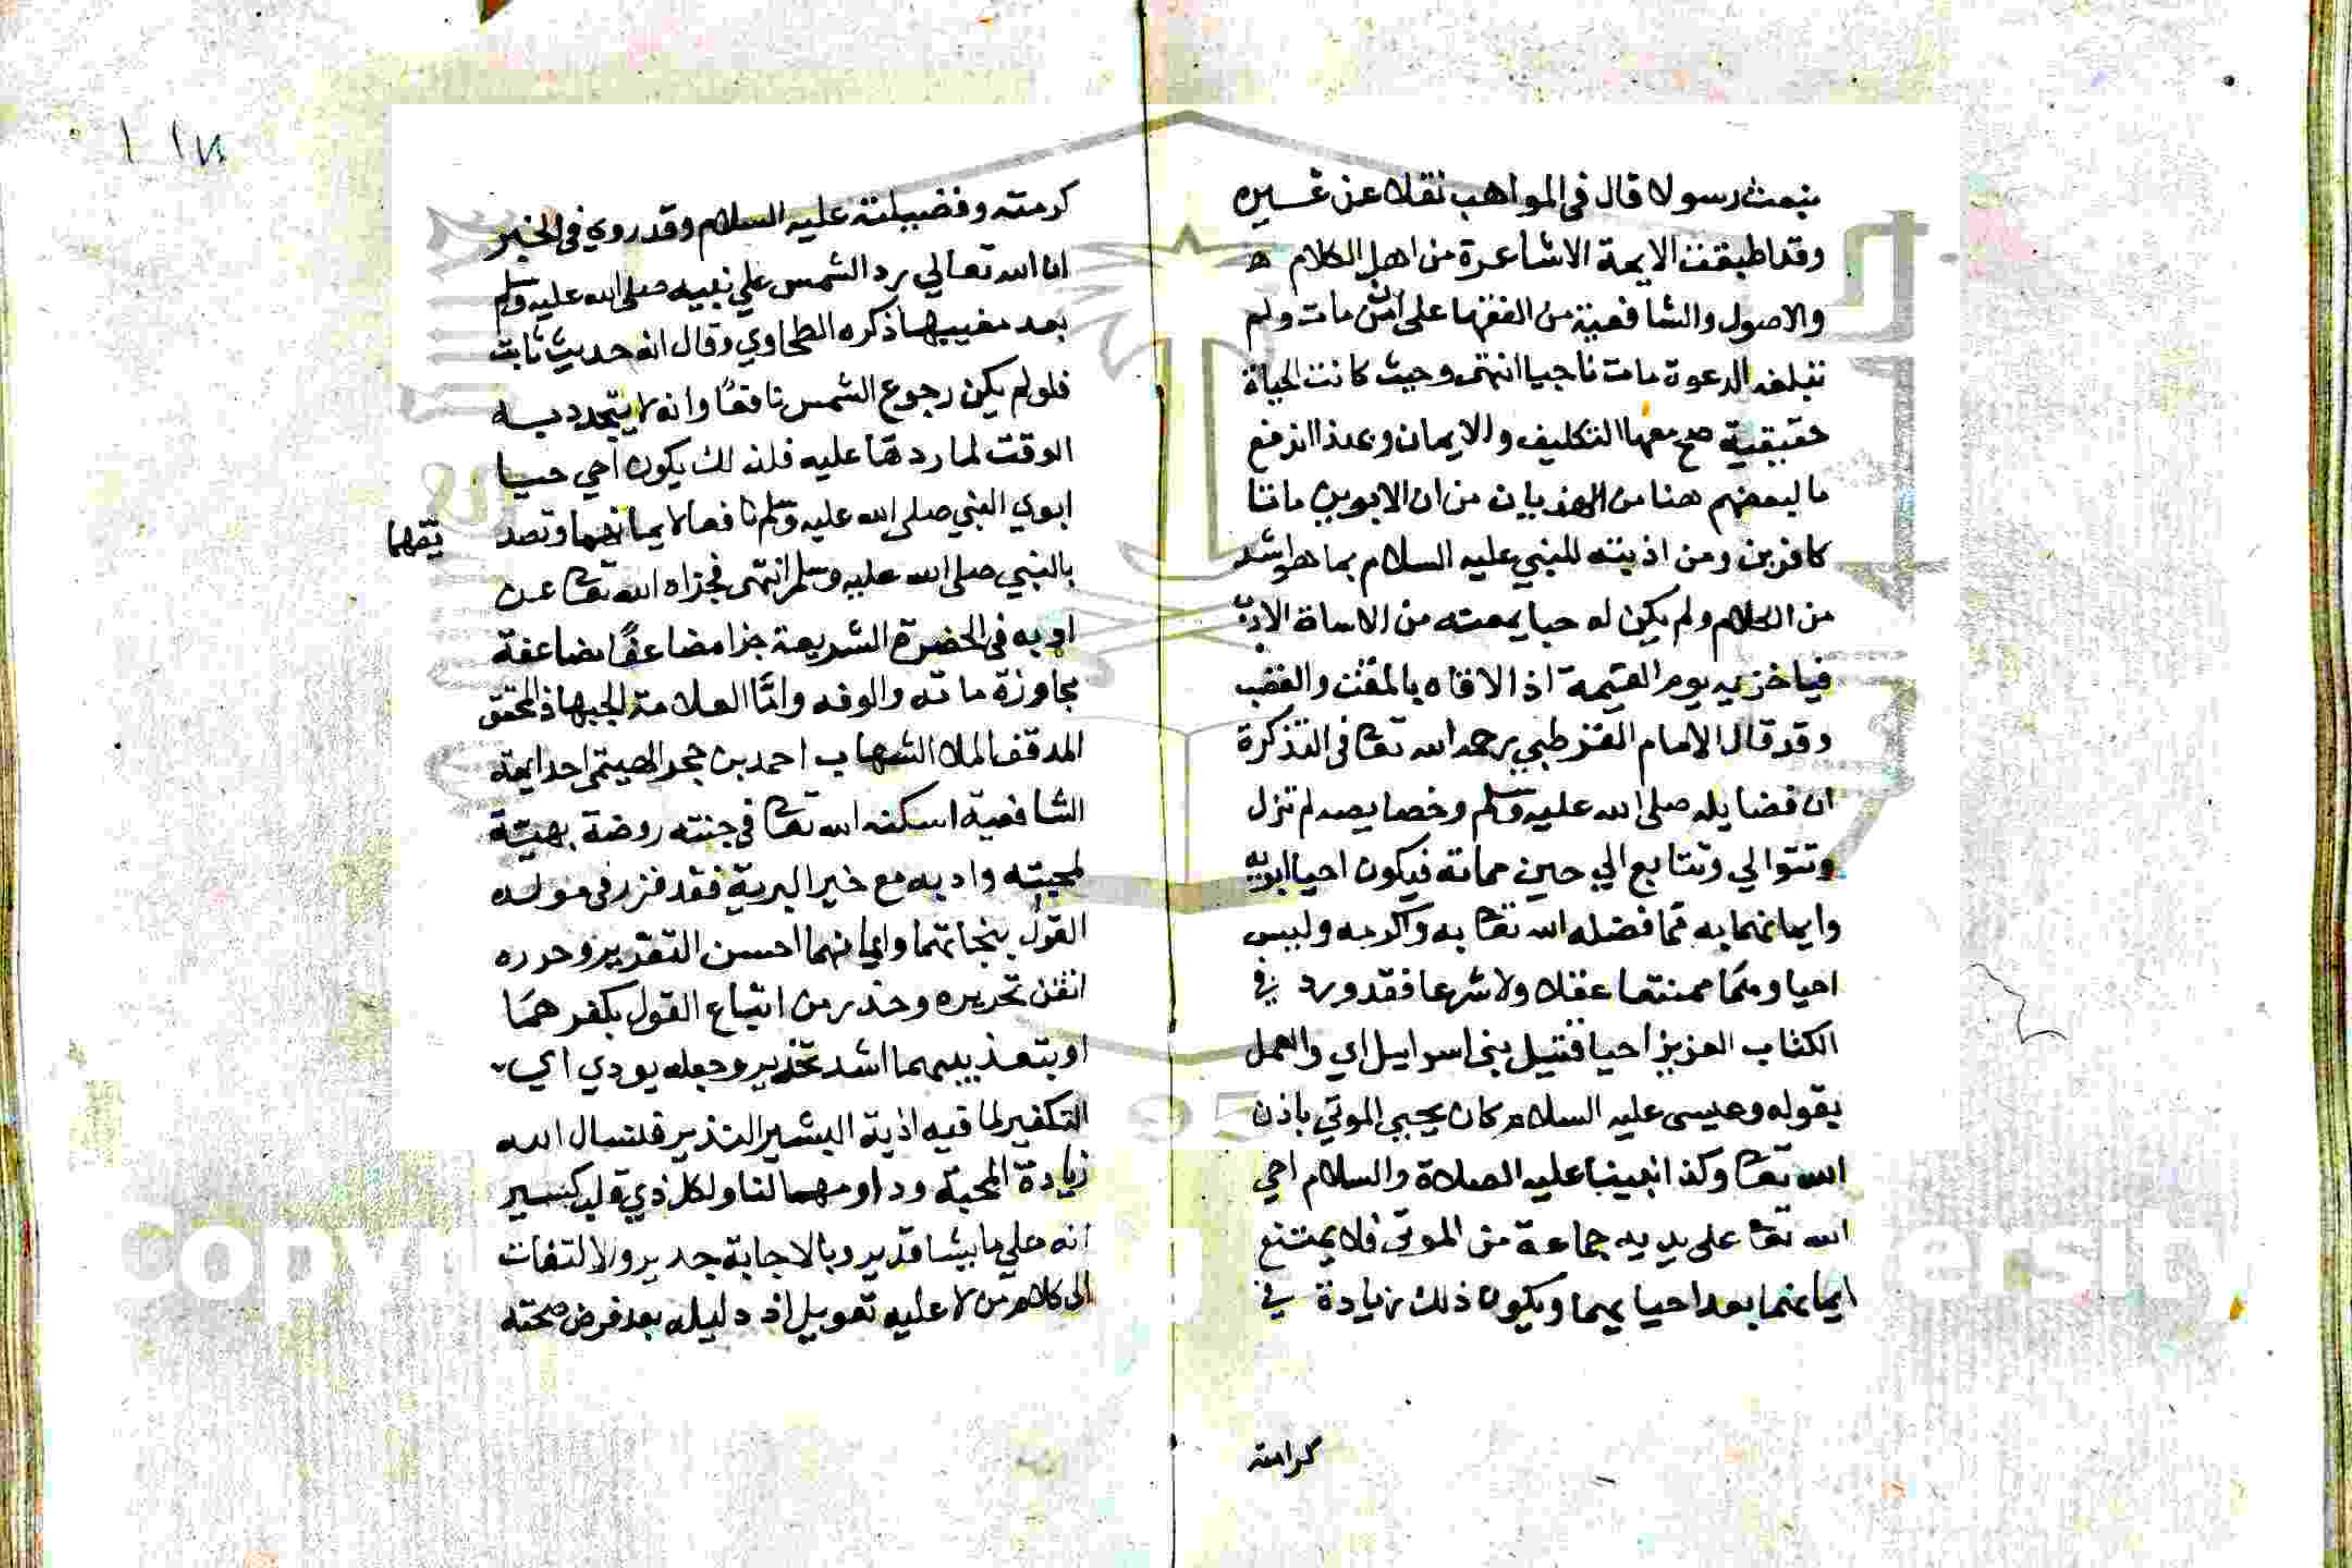 نبعث رسولا قال في المواهب نقلا عن غيره
وقد اطبقت الايمة الاشاعرة من اهل الكلام ه
والاصول والشافعية من الفقها على ان من مات ولم
تبلغه الدعوة مات ناجيا انتهى وحيث كانت الحياة
حقيقية صح معها التكليف والايمان وبهذا اندفع
ما لبعضهم هنا من الهذيان من ان الابوين ماتا
كافرين ومن اذيته للنبي عليه السلام بما هو اشد
من الكلام ولم يكن له حيا يمعته من الاساة الادب
فيا خزيه يوم القيمة اذا لاقاه بالمقت والغضب
وقد قال الامام القرطبي رحمه الله تعا في التذكرة
ان فضايله صلى الله عليه وسلم وخصايصه لم تزل
وتتوالي وتتابع الي حين مماته فيكون احيا ابويه
وايمانهما به مما فضله الله تعا به واكرمه وليس
احياوهما ممتنعا عقلا ولا شرعا فقد ورد في
الكتاب العزيز احيا قتيل بني اسراييل اي والعمل
بقوله وعيسى عليه السلام كان يحيي الموتي باذن
الله تعا وكذا نبينا عليه الصلاة والسلام احي
الله تعا على يديه جماعة من الموتى فلا يمتنع
ايمانهما بعد احيايهما ويكون ذلك زيادة في
كرامته
١١٧
كرمته وفضيلته عليه السلام وقد روي في الخبر
ان الله تعالي رد الشمس علي نبيه صلى الله عليه وسلم
بعد مغيبها ذكره الطحاوي وقال انه حديث ثابت
فلو لم يكن رجوع الشمس نافعا وانه لا يتجدد به
الوقت لما ردها عليه فلذلك يكون احي حيا
ابوي النبي صلى الله عليه وسلم نافعا لايمانهما وتصد يقهما
بالنبي صلى الله عليه وسلم انتهى فجزاه الله تعا عن
ادبه في الحضرة الشريعة جزا مضاعفا مضاعفة
مجاوزة ماته والوفه واما العلامة الجهباذ المحقق
المدقف الملا الشهاب احمد بن حجر الهيتمي احد ايمة
الشافعية اسكنه الله تعا في جنته روضة بهية
لمحبته وادبه مع خير البرية فقد قرر في مولده
القول بنجاتهما وايمانهما احسن التقرير وحرره
اتقن تحريره وحذر من اتباع القول بكفرهما
او بتعذيبهما اشد تحذير وجعله يودي الي
التكفير لما فيه اذية البشير النذير فلنسال الله
زيادة المحبة ودوامهما لنا ولكل ذي قلب كسير
انه علي ما يشا قدير وبالاجابة جدير ولا التفات
الى كلام من لا عليه تعويل اذ دليله بعد فرض صحته